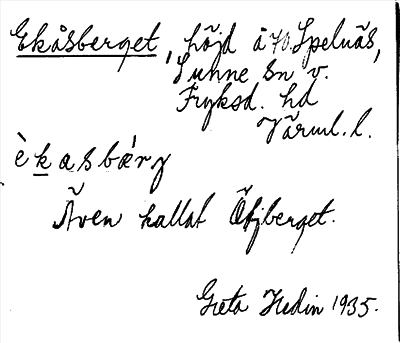 Ekåsberget, höjd å 70. Spelnäs,
Sunne sn v.
Fryksd. hd
Värml. l.
è k a s b æ̀ r y
Även kallat Öfjberget.
Greta Hedin 1935.